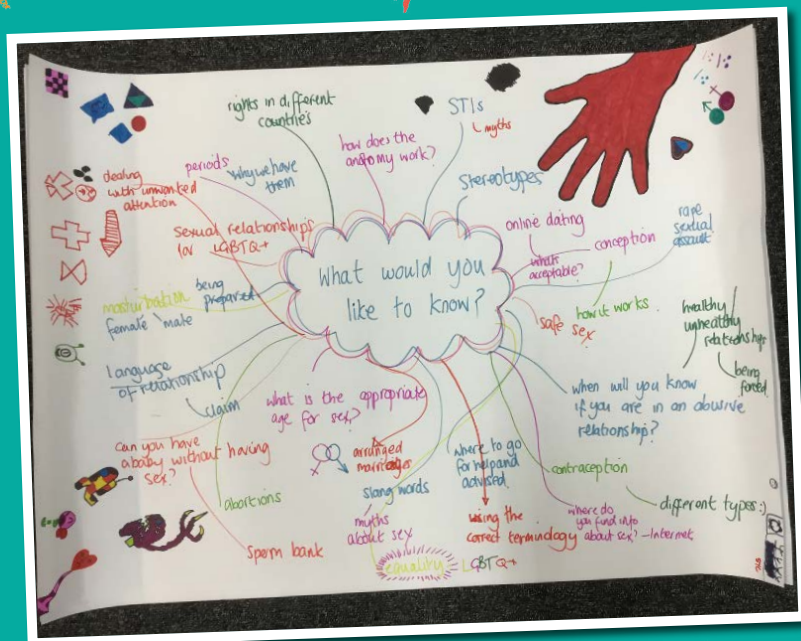 What would you
like to know?
rights in different
countries
how does the
anatomy work?
STIs
myths
Stereotypes
online dating
whats
acceptable?
conception
how it works
rape
sexual
assault
safe sex
healthy
unhealthy
relationships
being
forced
when will you know
if you are in an abusive
relationship?
contraception
different types :)
where do
you find info
about sex? - Internet
using the
correct terminology
where to go
for help and
advised
LGBTQ+
equality
myths
about sex
slang words
arranged
marriages
what is the appropriate
age for sex?
abortions
can you have
a baby without having
sex?
sperm bank
language
of relationship
claim
masturbation
female male
being
prepared
sexual relationships
for LGBTQ+
dealing
with unwanted
attention
periods
why we have
them